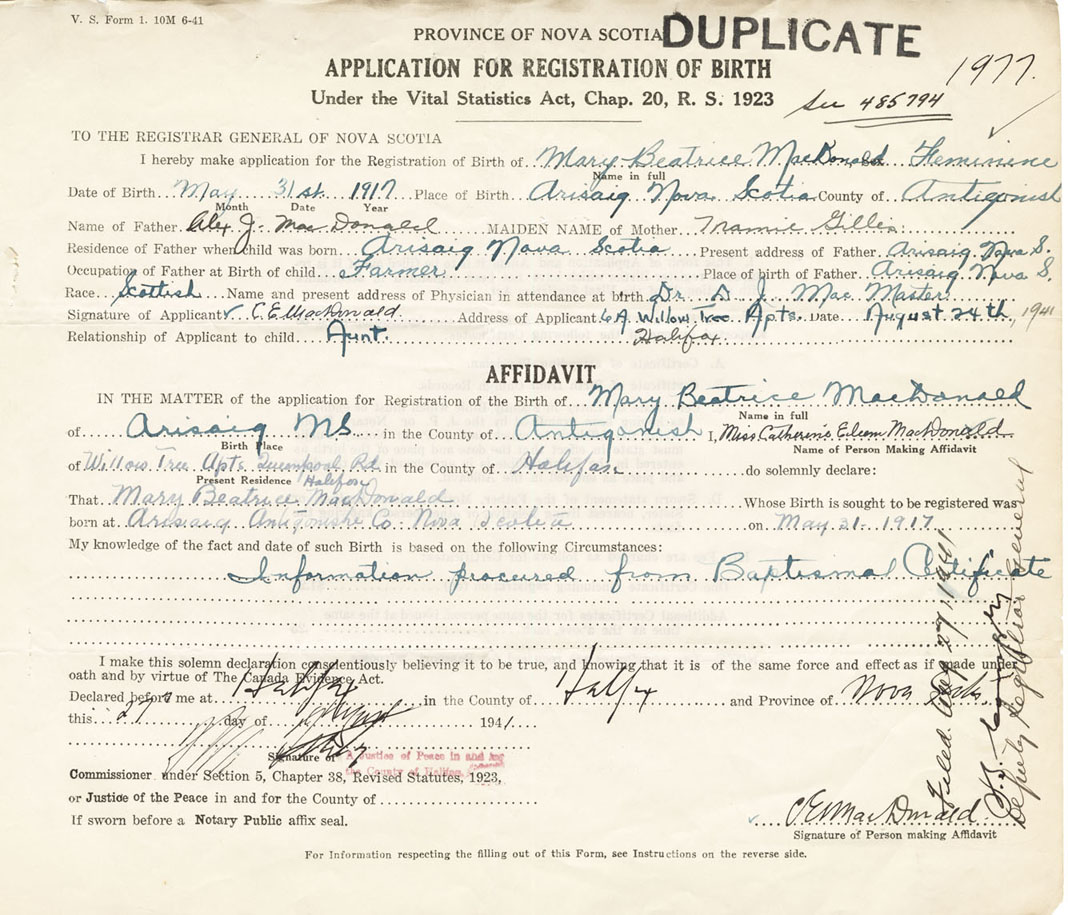 V. S. Form 1. 10M 6-41
PROVINCE OF NOVA SCOTIA DUPLICATE
APPLICATION FOR REGISTRATION OF BIRTH 1977.
Under the Vital Statistics Act, Chap. 20, R. S. 1923 See 485794
TO THE REGISTRAR GENERAL OF NOVA SCOTIA
I hereby make application for the Registration of Birth of Mary Beatrice MacDonald Feminine
Name in full
Date of Birth May 31st 1917 Place of Birth Arisaig Nova Scotia County of Antigonish
Month Date Year
Name of Father Alex J. MacDonald MAIDEN NAME of Mother Gillis
Residence of Father when child was born Arisaig Nova Scotia Present address of Father Arisaig Nova S.
Occupation of Father at Birth of child Farmer Place of birth of Father Arisaig Nova S.
Race Scottish Name and present address of Physician in attendance at birth Dr. D J. MacMaster
Signature of Applicant C.E. MacDonald Address of Applicant 6A Willow Tree Apts. Date August 24th, 1941
Relationship of Applicant to child Aunt. Halifax
AFFIDAVIT
IN THE MATTER of the application for Registration of the Birth of Mary Beatrice MacDonald
Name in full
of Arisaig NS. in the County of Antigonish I, Miss Catherine Eileen MacDonald
Birth Place Name of Person Making Affidavit
of Willow Tree Apts. Rd. in the County of Halifax do solemnly declare:
Present Residence Halifax
That Mary Beatrice MacDonald Whose Birth is sought to be registered was
born at Arisaig Antigonish Co. Nova Scotia on May 31- 1917
My knowledge of the fact and date of such Birth is based on the following Circumstances:
Information procured from Baptismal Certificate
I make this solemn declaration conscientiously believing it to be true, and knowing that it is of the same force and effect as if made under
oath and by virtue of The Canada Evidence Act.
Declared before me at Halifax in the County of Halifax and Province of Nova Scotia
this 27 day of August 1941.
Signature of A Justice of Peace in and for
the County of Halifax
Commissioner under Section 5, Chapter 38, Revised Statutes, 1923,
or Justice of the Peace in and for the County of
If sworn before a Notary Public affix seal.
C E MacDonald
Signature of Person making Affidavit
For Information respecting the filling out of this Form, see Instructions on the reverse side.
Filed Aug 27, 1941
Deputy Registrar General